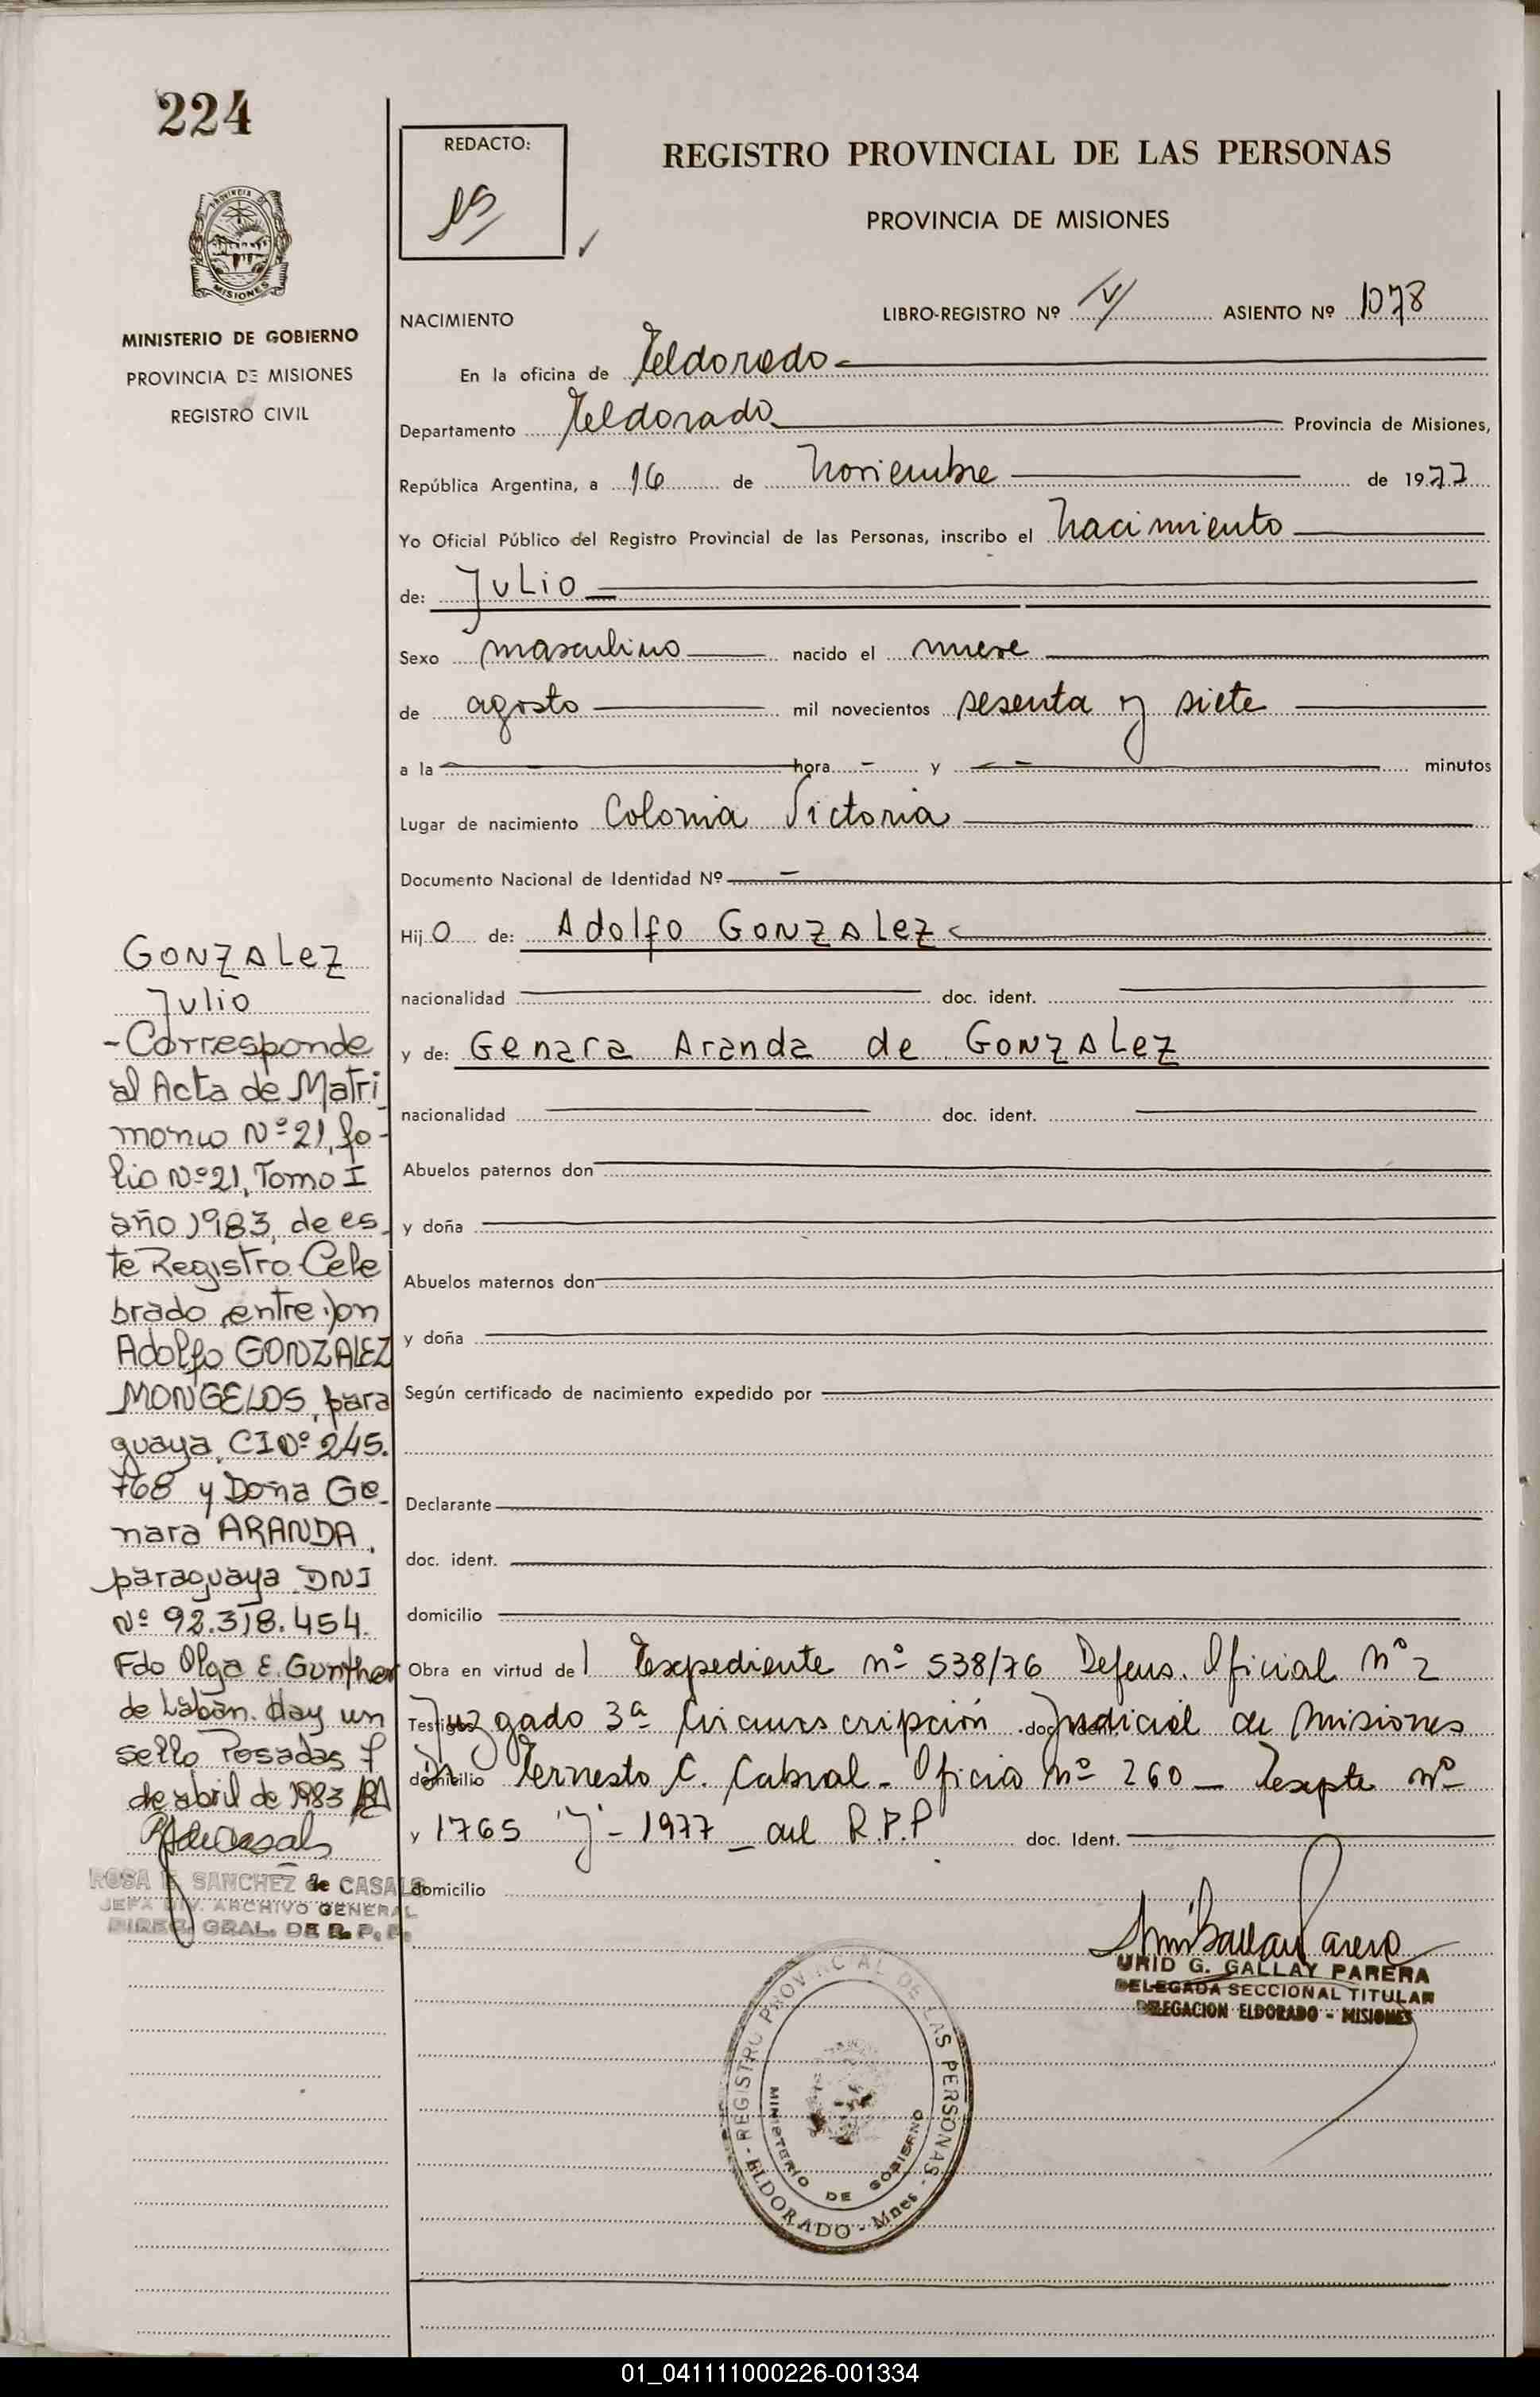 224
REDACTO:
REGISTRO PROVINCIAL DE LAS PERSONAS
PROVINCIA DE MISIONES
MISIONES
MINISTERIO DE GOBIERNO
PROVINCIA DE MISIONES
REGISTRO CIVIL
NACIMIENTO
LIBRO-REGISTRO Nº IV ASIENTO Nº 1078
En la oficina de Eldorado
Departamento Eldorado Provincia de Misiones,
República Argentina, a 16 de noviembre de 1977
Yo Oficial Público del Registro Provincial de las Personas, inscribo el nacimiento
de: JULIO
Sexo masculino nacido el nueve
de agosto mil novecientos sesenta y siete
a la hora - y minutos
Lugar de nacimiento Colonia Victoria
Documento Nacional de Identidad Nº -
Hijo de: Adolfo GONZALEZ
nacionalidad doc. ident.
y de: Genara Aranda de GONZALEZ
nacionalidad doc. ident.
Abuelos paternos don
y doña
Abuelos maternos don
y doña
Según certificado de nacimiento expedido por
Declarante
doc. ident.
domicilio
Obra en virtud del Expediente nº 538/76 Defens. Oficial Nº 2
Testigos Juzgado 3ª Circunscripción doc. Judicial de Misiones
domicilio Dr. Ernesto C. Cabral - Oficio Nº 260 - Expte Nº
y 1765 "J" - 1977 - del R.P.P doc. Ident.
domicilio
GONZALEZ
Julio
-Corresponde
al Acta de Matri
monio Nº 21, fo-
lio Nº 21, Tomo I
año 1983, de es
te Registro Cele
brado entre Don
Adolfo GONZALEZ
MONGELOS, para
guaya, CI Nº 245.
768 y Doña Ge-
nara ARANDA,
paraguaya DNI
Nº 92.318.454.
Fdo Olga E. Gunther
de Labán. Hay un
sello Posadas 7
de abril de 1983
ROSA E. SANCHEZ de CASALS
JEFA DIV. ARCHIVO GENERAL
DIREC. GRAL. DE R. P. P.
URID G. GALLAY PARERA
DELEGADA SECCIONAL TITULAR
DELEGACION ELDORADO - MISIONES
REGISTRO PROVINCIAL DE LAS PERSONAS
MINISTERIO DE GOBIERNO
- ELDORADO - Mnes -
01_041111000226-001334